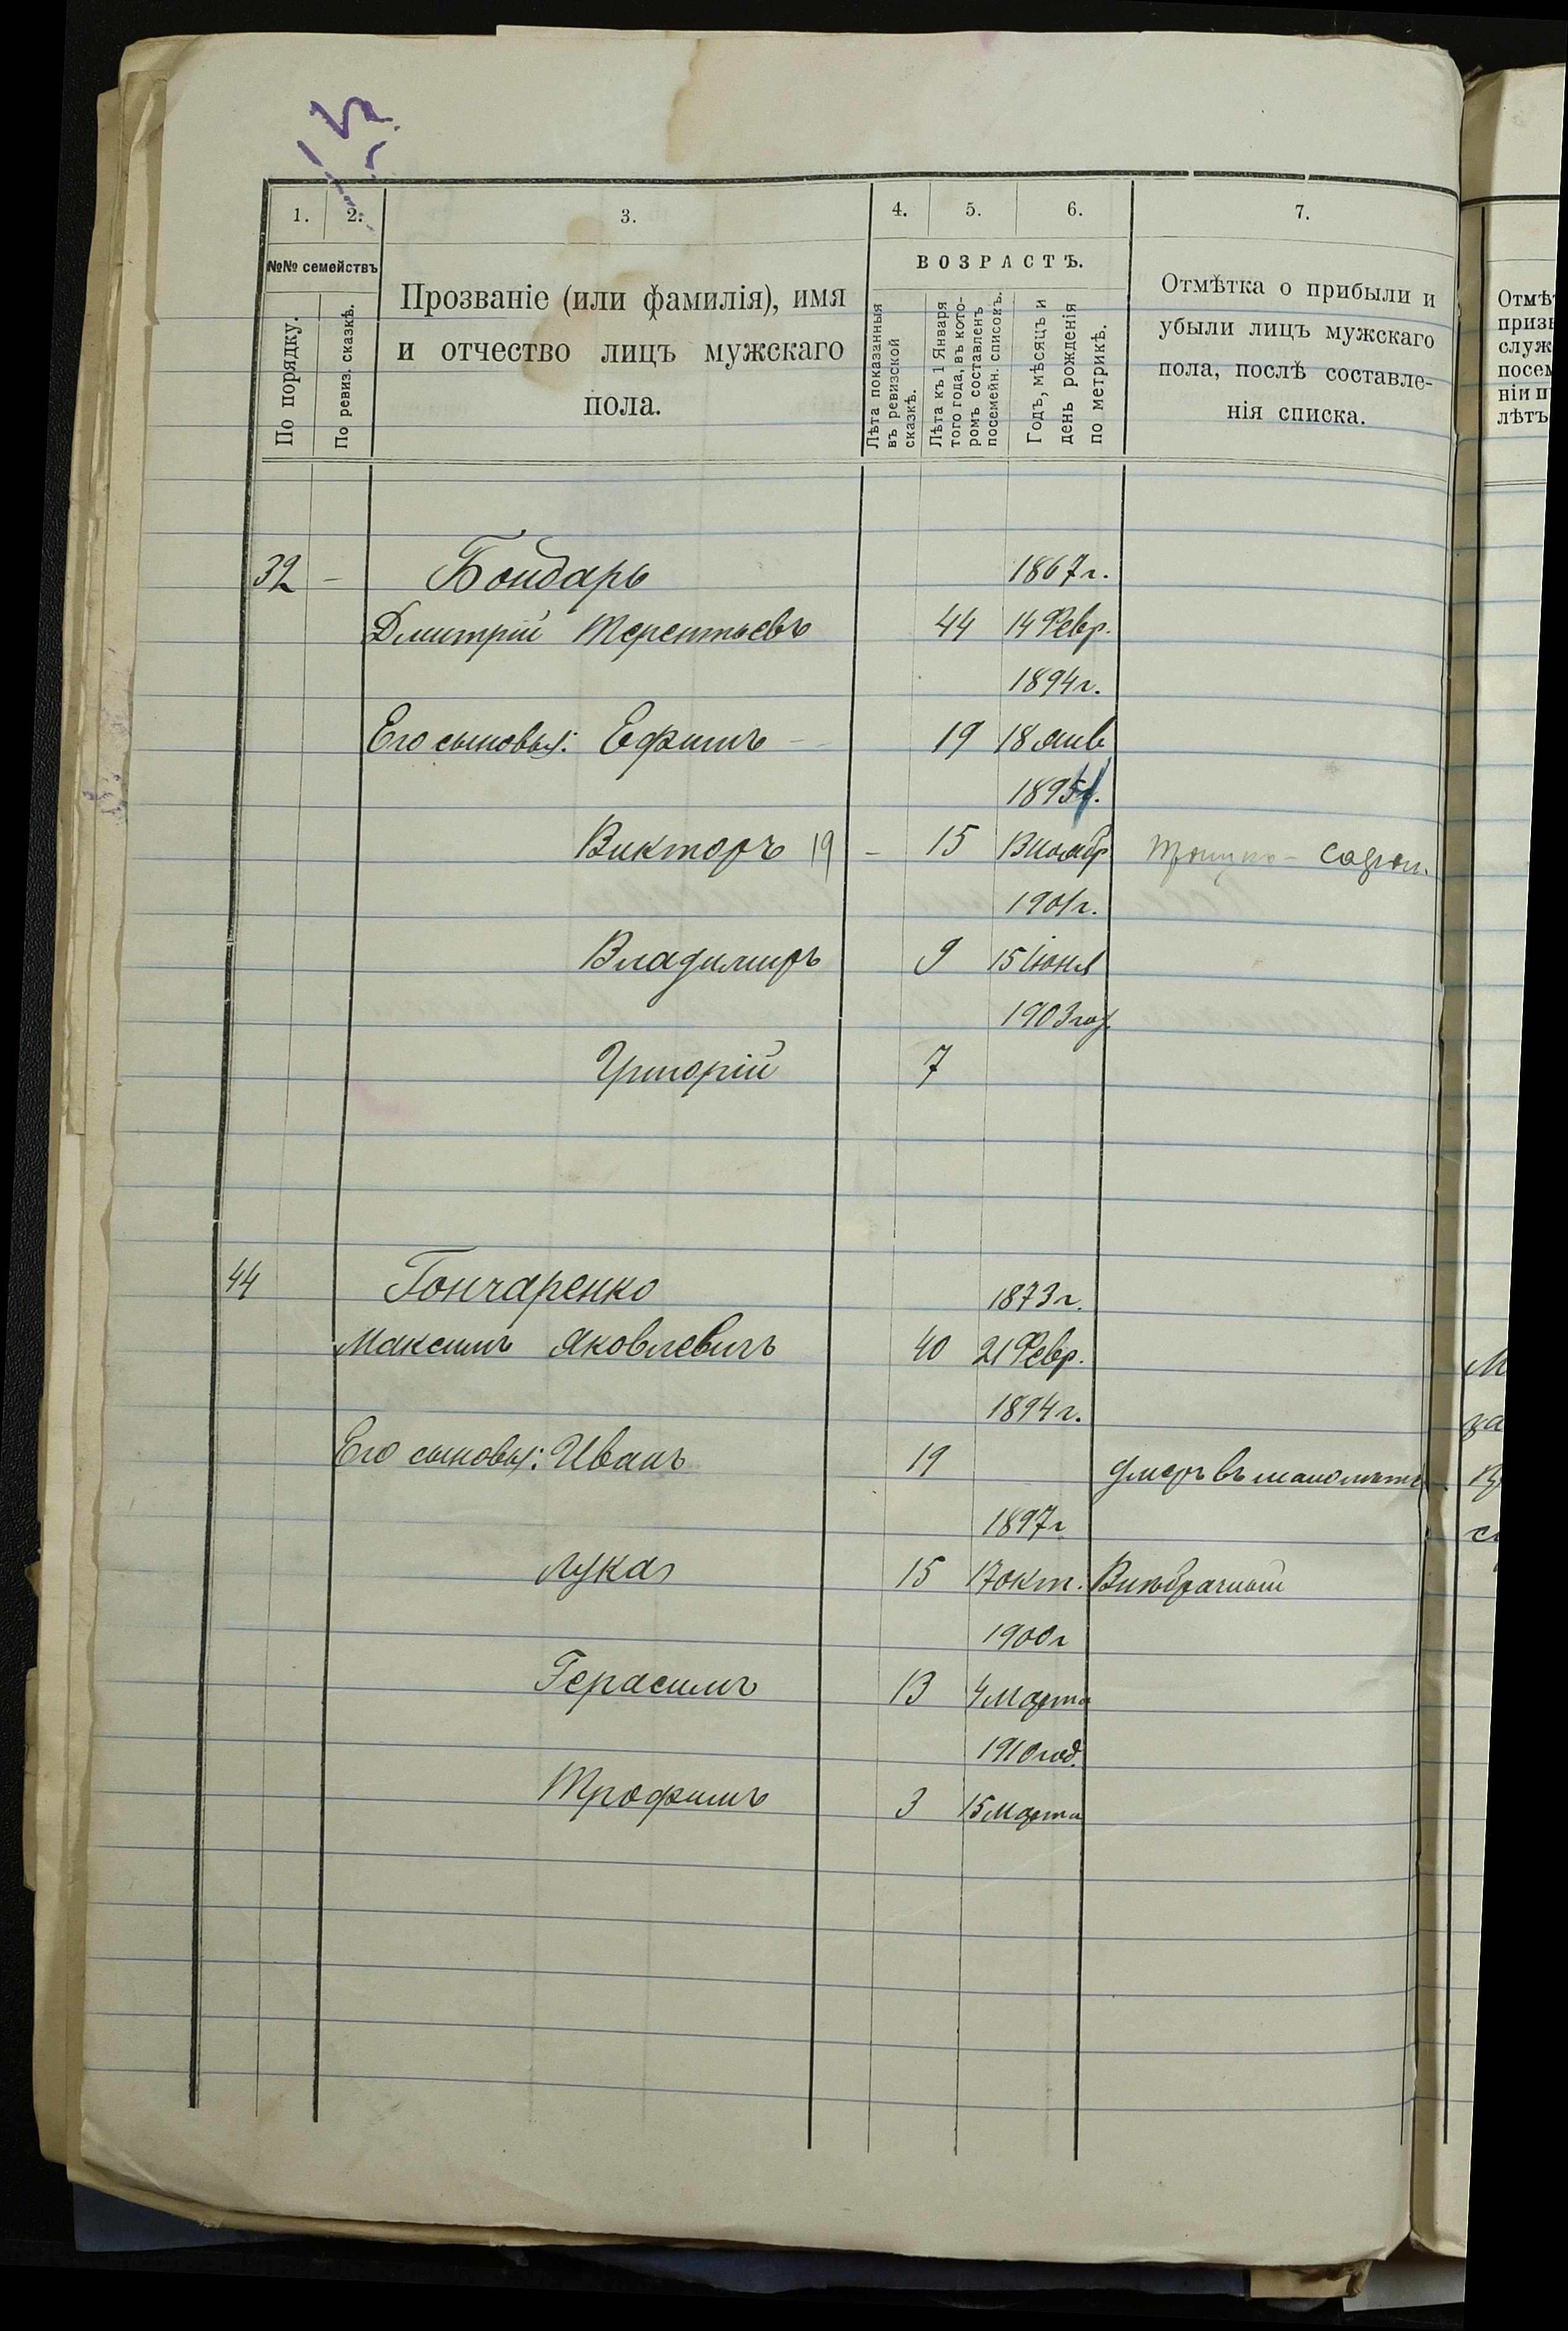 1. 2. 3. 4. 5. 6. 7.
№№ семействъ
По порядку.
По ревиз. сказкѣ.
Прозваніе (или фамилія), имя
и отчество лицъ мужскаго
пола.
ВОЗРАСТЪ.
Лѣта показанныя
въ ревизской
сказкѣ.
Лѣта къ 1 Января
того года, въ кото-
ромъ составленъ
посемейн. списокъ.
Годъ, мѣсяцъ и
день рожденія
по метрикѣ.
Отмѣтка о прибыли и
убыли лицъ мужскаго
пола, послѣ составле-
нія списка.
32 - Бондарь 1867г.
Дмитрій Терентьевъ 44 14 Февр.
1894г.
Его сыновья: Ефимъ - 19 18 янв
1895
Викторъ 19 - 15
1901г.
Владимиръ 9 15 іюня
1903год
Григорій 7
44 Гончаренко 1873г.
Максимъ Яковлевичъ 40 21 Февр.
1894г.
Его сыновья: Иванъ 19 умеръ въ малолѣтс
1897г
Лука 15 17 окт. Внѣбрачный
1900г
Герасимъ 13 4 Марта
1910 год.
Трофимъ 3 15 Марта
Отмѣ
приз
служ
посем
ніи п
лѣтъ
М
за